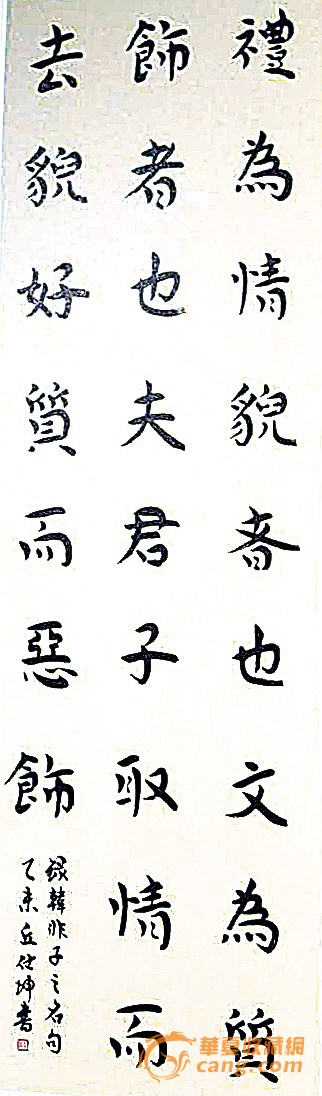 禮為情貌者也文為質
飾者也夫君子取情而
去貌好質而惡飾
録韓非子之名句
乙未丘仕坤書
華夏收藏網
cang.com